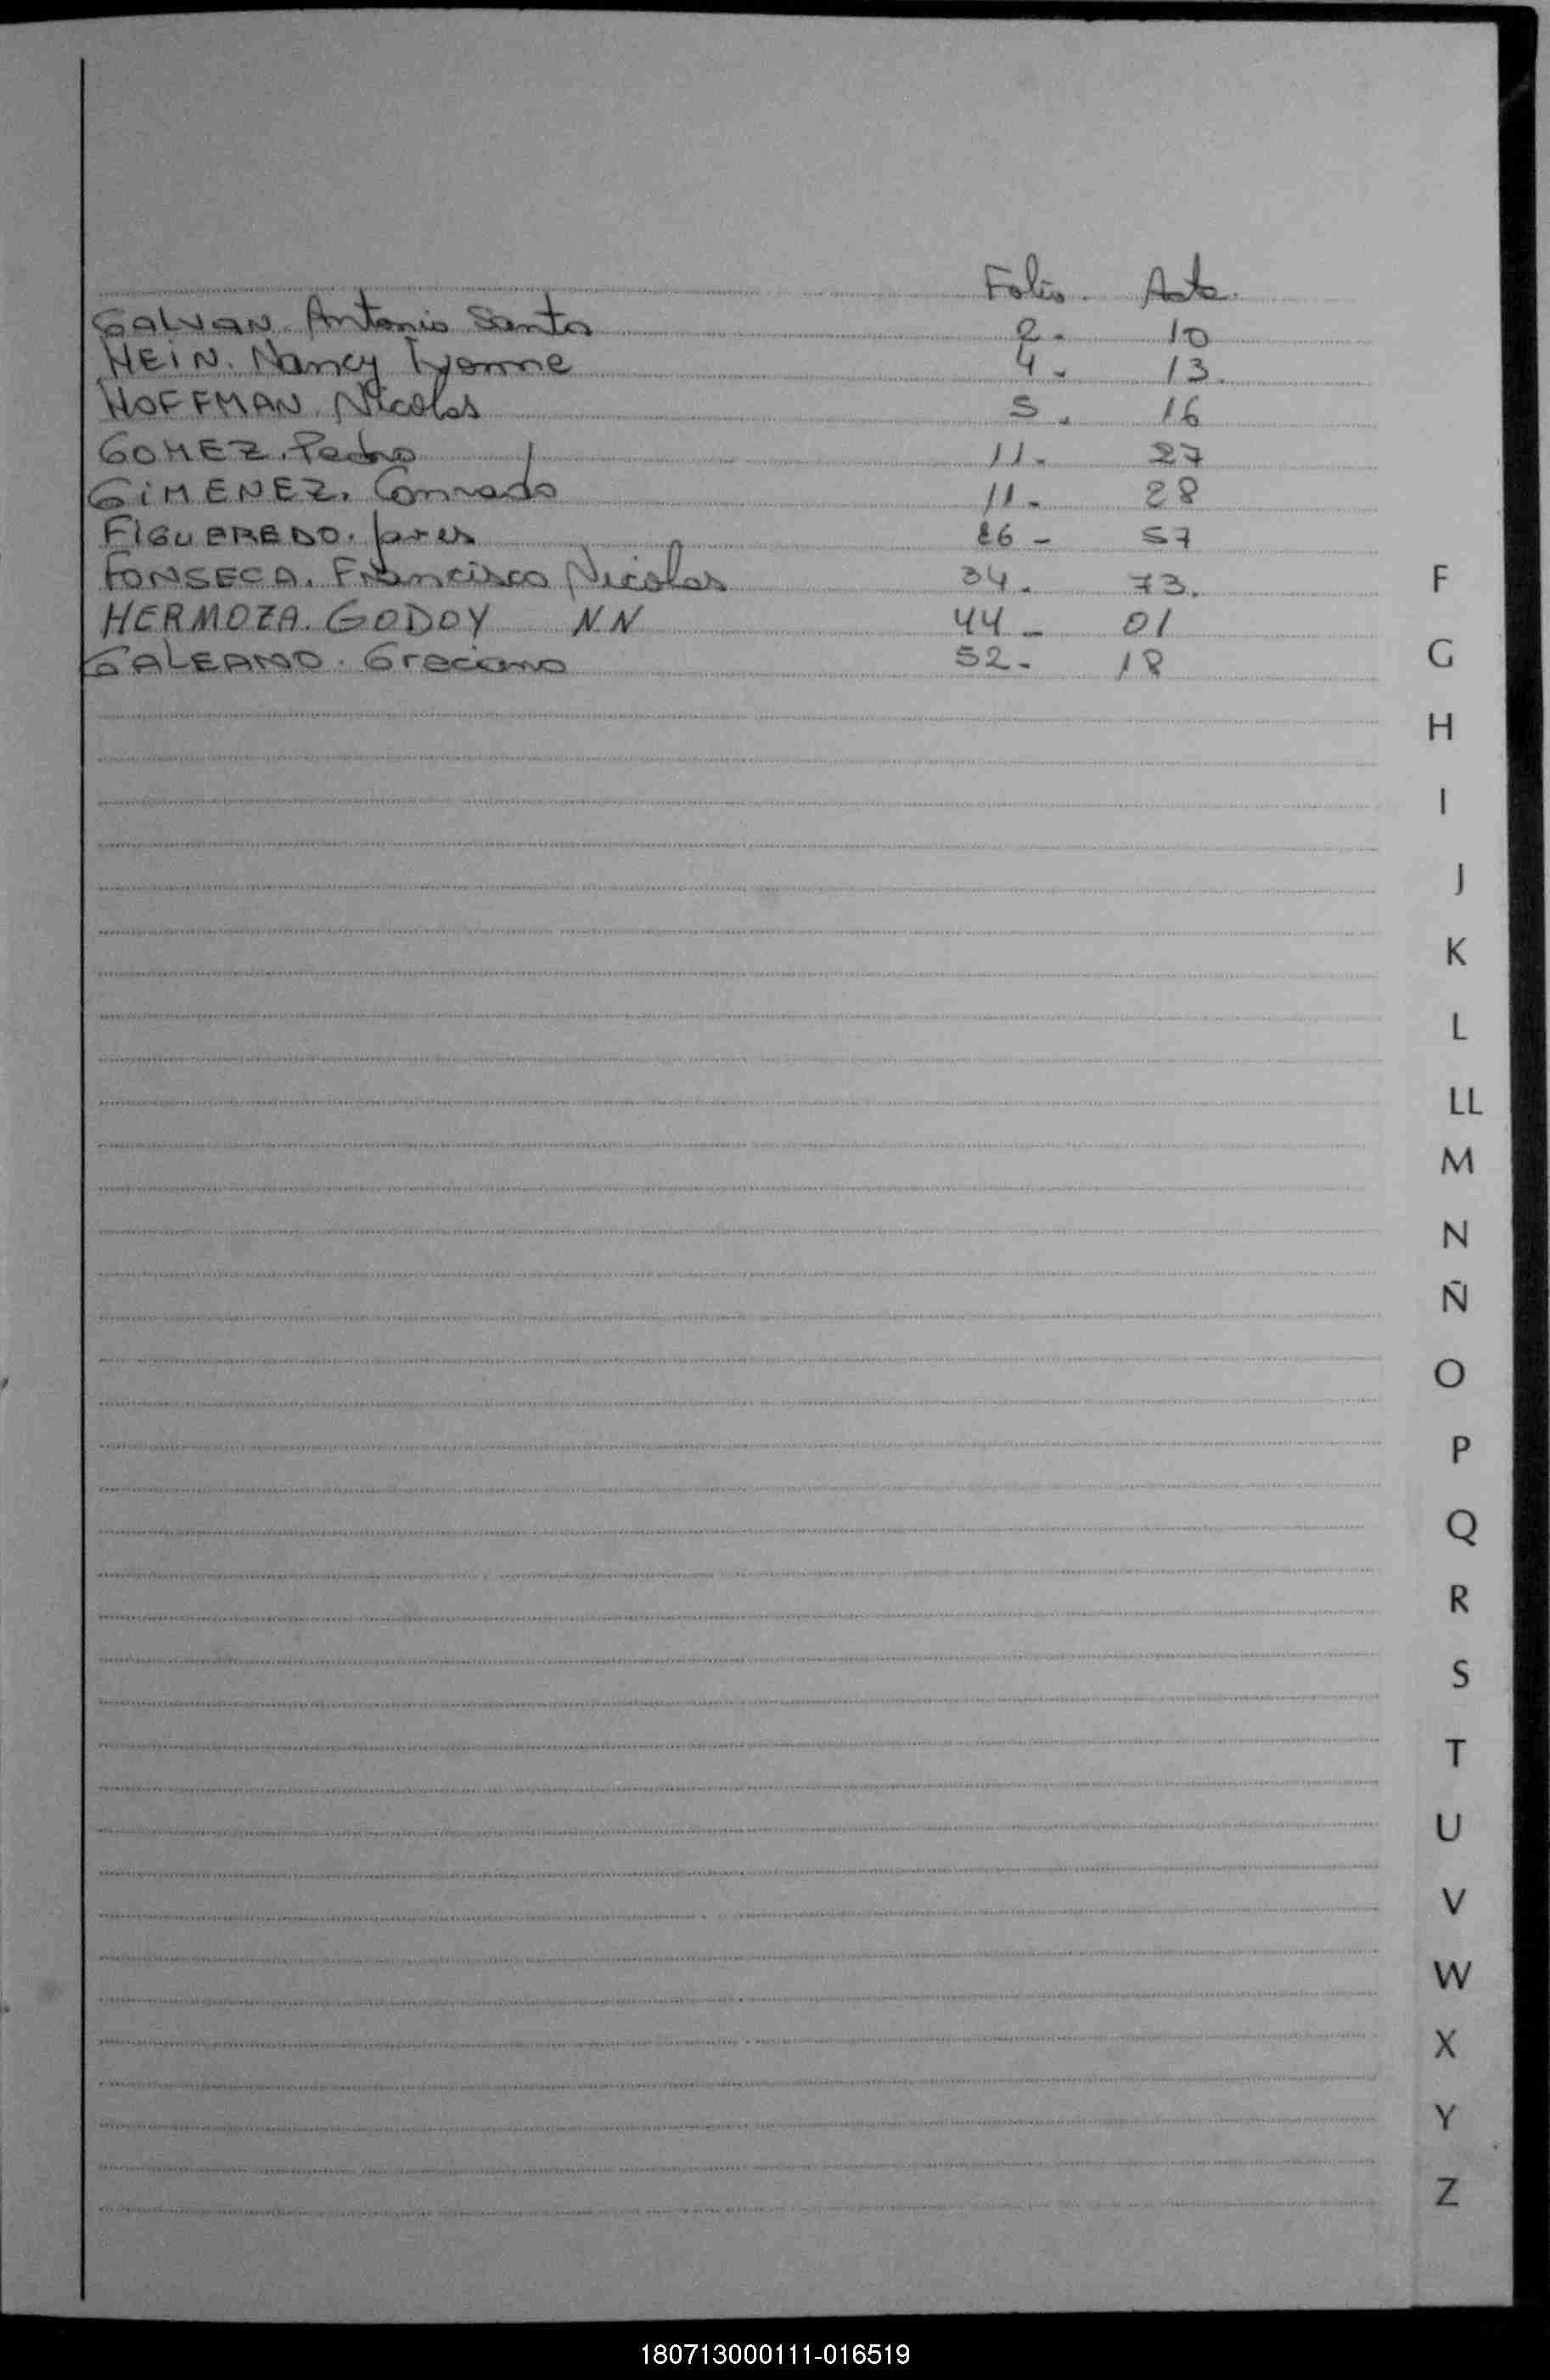 Folio. Acta.
GALVAN. Antonio Santos 2. 10
HEIN. Nancy Ivonne 4. 13.
HOFFMAN. Nicolas 5. 16
GOMEZ. Pedro 11. 27
GIMENEZ. Conrado 11. 28
FIGUEREDO. 26 - 57
FONSECA. Francisco Nicolas 34. 73.
HERMOZA. GODOY NN 44 - 01
GALEANO. Greciano 52. 18
F
G
H
I
J
K
L
LL
M
N
Ñ
O
P
Q
R
S
T
U
V
W
X
Y
Z
180713000111-016519